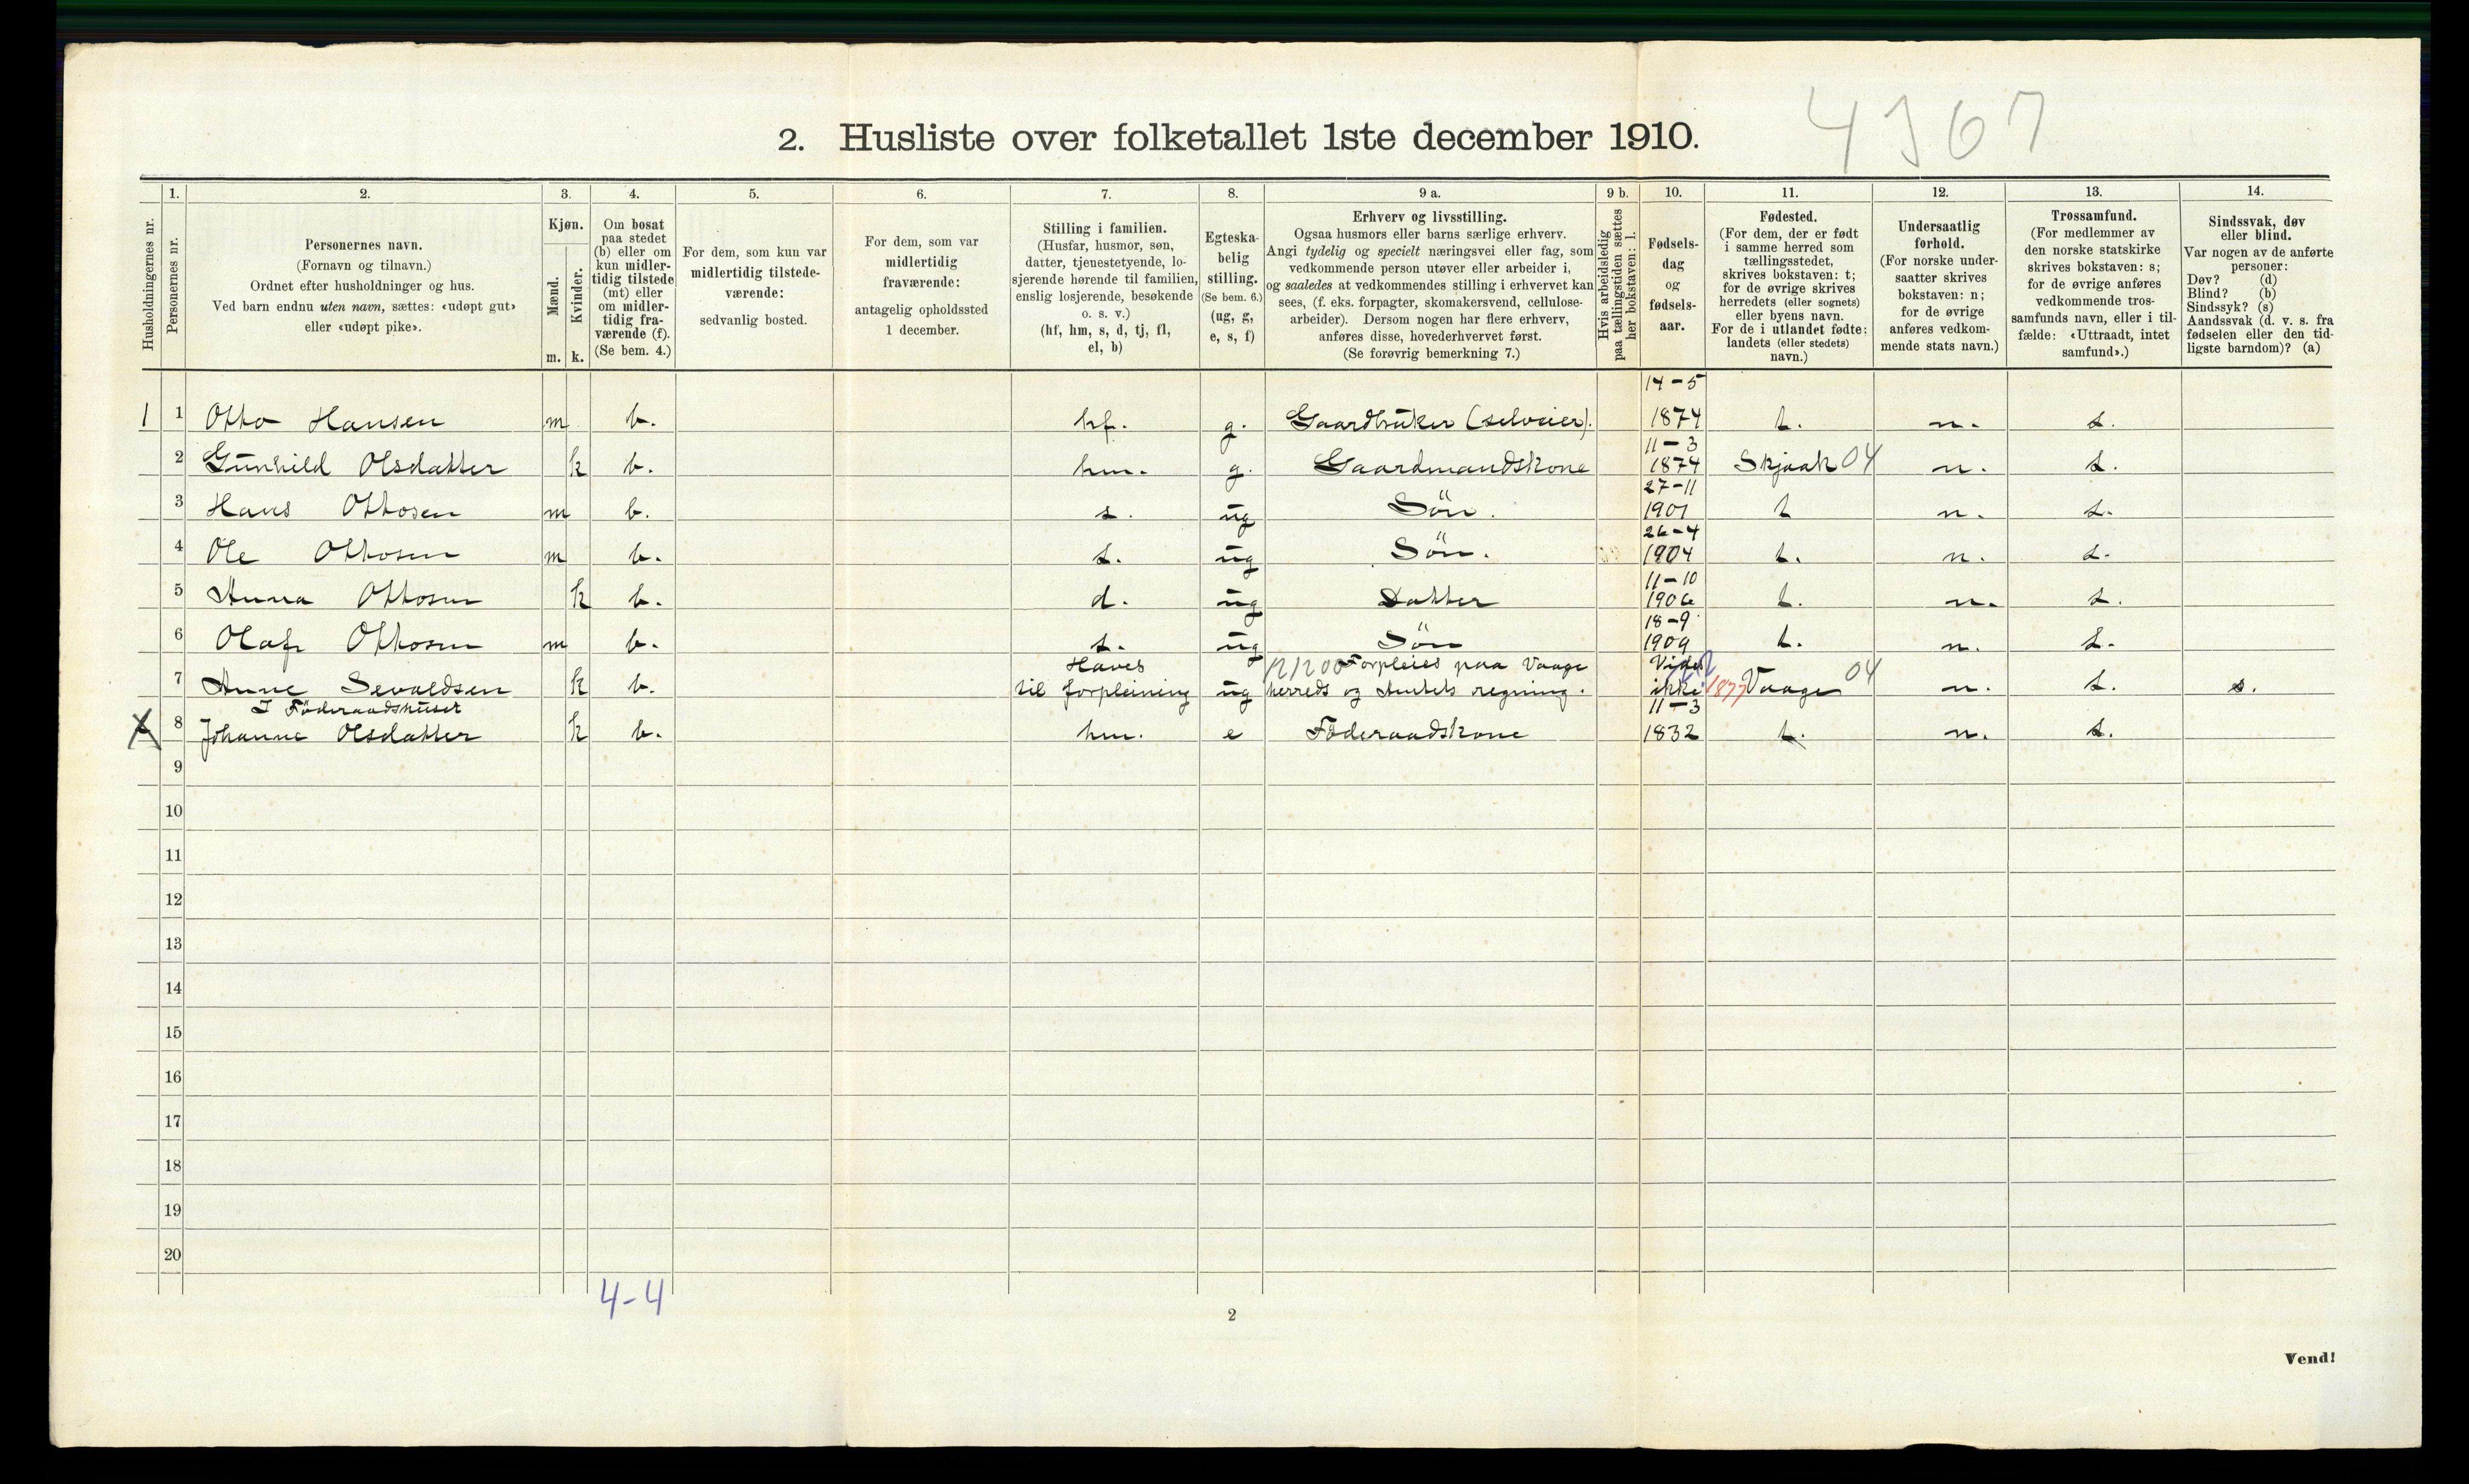 4367
2. Husliste over folketallet 1ste december 1910.
Husholdningernes nr.
1.
Personernes nr.
2.
Personernes navn.
(Fornavn og tilnavn.)
Ordnet efter husholdninger og hus.
Ved barn endnu uten navn, sættes: «udøpt gut»
eller «udøpt pike».
3.
Kjøn.
Mænd.
Kvinder.
m. k.
4.
Om bosat
paa stedet
(b) eller om
kun midler-
tidig tilstede
(mt) eller
om midler-
tidig fra-
værende (f).
(Se bem. 4.)
5.
For dem, som kun var
midlertidig tilstede-
værende:
sedvanlig bosted.
6.
For dem, som var
midlertidig
fraværende:
antagelig opholdssted
1 december.
7.
Stilling i familien.
(Husfar, husmor, søn,
datter, tjenestetyende, lo-
sjerende hørende til familien,
enslig losjerende, besøkende
o. s. v.)
(hf, hm, s, d, tj, fl,
el, b)
8.
Egteska-
belig
stilling.
(Se bem. 6.)
(ug, g,
e, s, f)
9 a.
Erhverv og livsstilling.
Ogsaa husmors eller barns særlige erhverv.
Angi tydelig og specielt næringsvei eller fag, som
vedkommende person utøver eller arbeider i,
og saaledes at vedkommendes stilling i erhvervet kan
sees, (f. eks. forpagter, skomakersvend, cellulose-
arbeider). Dersom nogen har flere erhverv,
anføres disse, hovederhvervet først.
(Se forøvrig bemerkning 7.)
9 b.
Hvis arbeidsledig
paa tællingstiden sættes
her bokstaven: l.
10.
Fødsels-
dag
og
fødsels-
aar.
11.
Fødested.
(For dem, der er født
i samme herred som
tællingsstedet,
skrives bokstaven: t;
for de øvrige skrives
herredets (eller sognets)
eller byens navn.
For de i utlandet fødte:
landets (eller stedets)
navn.)
12.
Undersaatlig
forhold.
(For norske under-
saatter skrives
bokstaven: n;
for de øvrige
anføres vedkom-
mende stats navn.)
13.
Trossamfund.
(For medlemmer av
den norske statskirke
skrives bokstaven: s;
for de øvrige anføres
vedkommende tros-
samfunds navn, eller i til-
fælde: «Uttraadt, intet
samfund».)
14.
Sindssvak, døv
eller blind.
Var nogen av de anførte
personer:
Døv? (d)
Blind? (b)
Sindssyk? (s)
Aandssvak (d. v. s. fra
fødselen eller den tid-
ligste barndom)? (a)
14-5
1 1 Otto Hansen m b. hf. g. Gaardbruker (selveier). 1874 t. n. s.
11-3
2 Gunhild Olsdatter k b. hm. g. Gaardmandskone 1874 Skjaak 04 n. s.
27-11
3 Hans Ottosen m b. s. ug Sön. 1901 t n. s.
26-4
4 Ole Ottosen m b. s. ug Sön. 1904 t. n. s.
11-10
5 Anna Ottosen k b. d. ug Datter 1906 t. n. s.
18-9
6 Olaf Ottosen m b. s. ug Sön 1909 t. n. s.
Haves 121200 Forpleies paa Vaage Vides
7 Anne Sevaldsen k b. til forpleining ug herreds og Amtets regning. ikke 1877 Vaage 04 n. s. s.
I Föderaadshuset 11-3
X 8 Johanne Olsdatter k b. hm. e Föderaadskone 1832 t. n. s.
9
10
11
12
13
14
15
16
17
18
19
20
4-4
2
Vend!